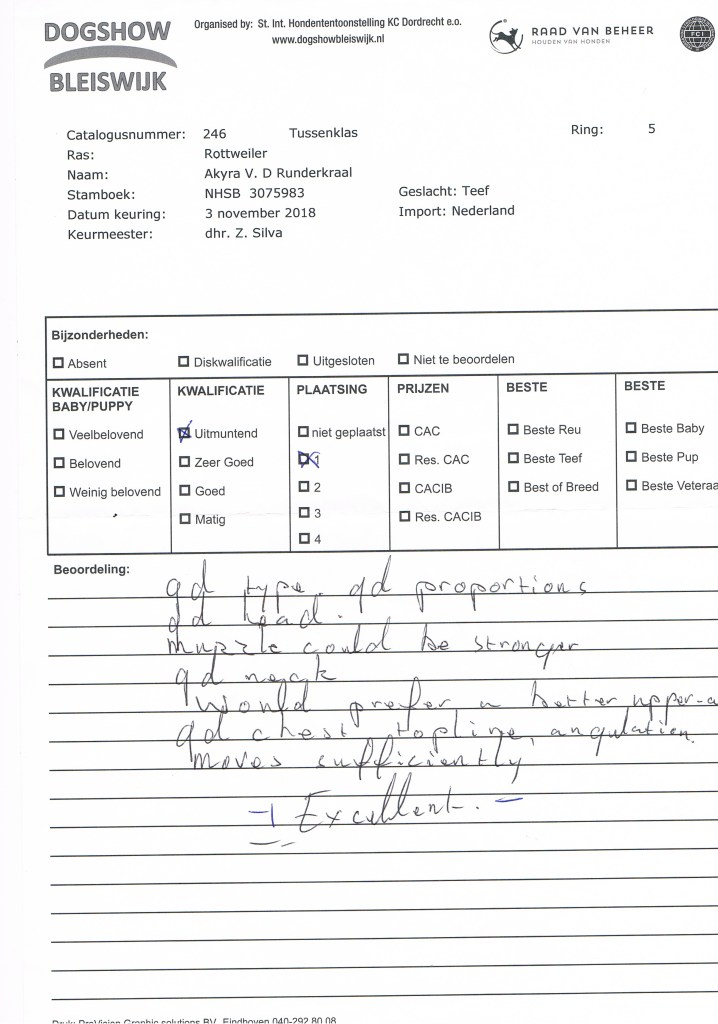 DOGSHOW
BLEISWIJK
Organised by: St. Int. Hondententoonstelling KC Dordrecht e.o.
www.dogshowbleiswijk.nl
RAAD VAN BEHEER
HOUDEN VAN HONDEN
FCI
Catalogusnummer: 246 Tussenklas Ring: 5
Ras: Rottweiler
Naam: Akyra V. D Runderkraal
Stamboek: NHSB 3075983 Geslacht: Teef
Datum keuring: 3 november 2018 Import: Nederland
Keurmeester: dhr. Z. Silva
Bijzonderheden:
Absent Diskwalificatie Uitgesloten Niet te beoordelen
KWALIFICATIE BABY/PUPPY
Veelbelovend
Belovend
Weinig belovend
KWALIFICATIE
Uitmuntend
Zeer Goed
Goed
Matig
PLAATSING
niet geplaatst
1
2
3
4
PRIJZEN
CAC
Res. CAC
CACIB
Res. CACIB
BESTE
Beste Reu
Beste Teef
Best of Breed
BESTE
Beste Baby
Beste Pup
Beste Vetera
Beoordeling:
gd type. gd proportions
gd head.
muzzle could be stronger
gd neck
Would prefer a better upper-a
gd chest, topline, angulation.
moves sufficiently
Excellent.
Druk: ProVision Graphic solutions BV, Eindhoven 040-292 80 08